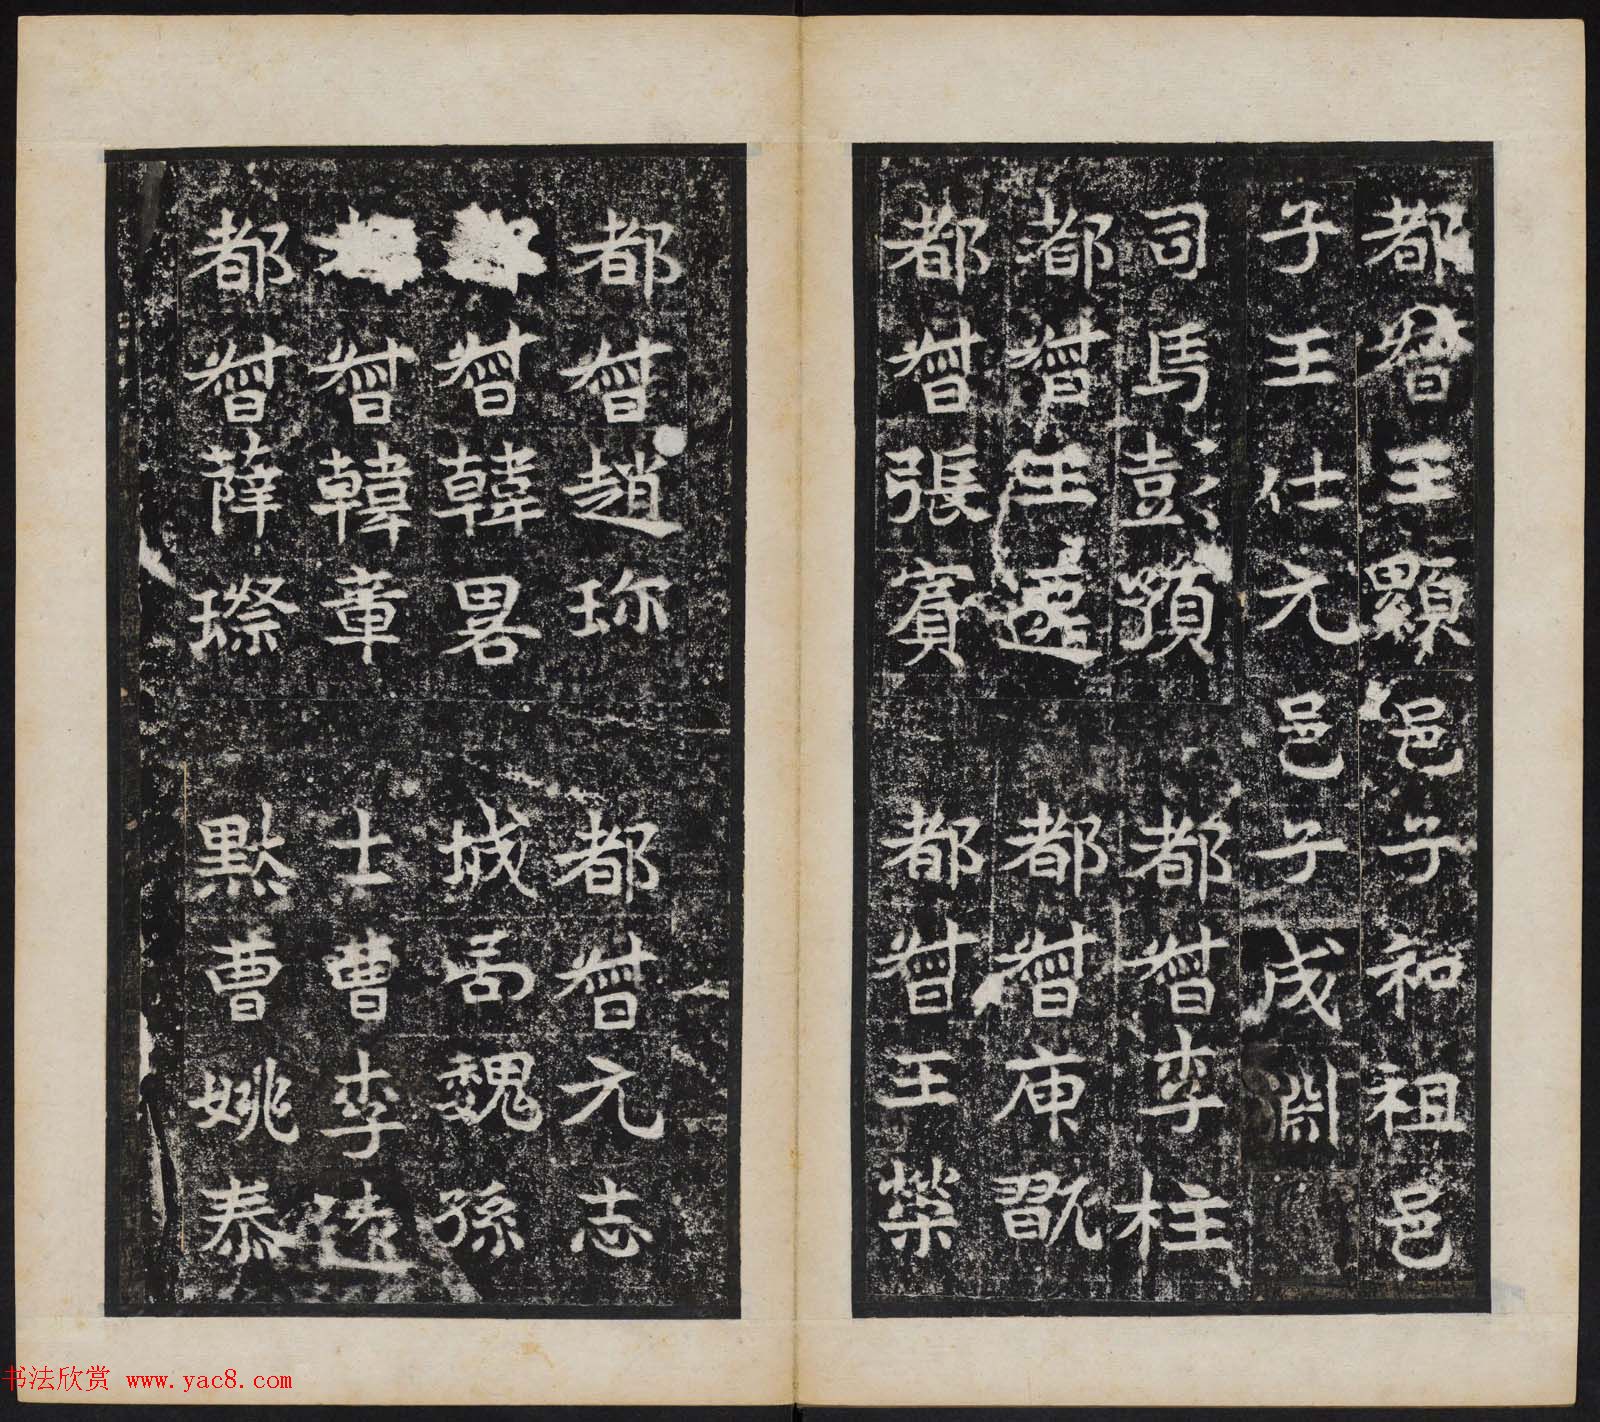 都督王顯邑子和祖邑
子王仕元邑子成淵
司馬彭 都督李柱
都督王 都督翫
都督張賓 都督王榮
都督趙珎 都督元志
督韓畧 城局魏孫
督韓章 士曹李
都督薛 默曹姚泰
书法欣赏 www.yac8.com